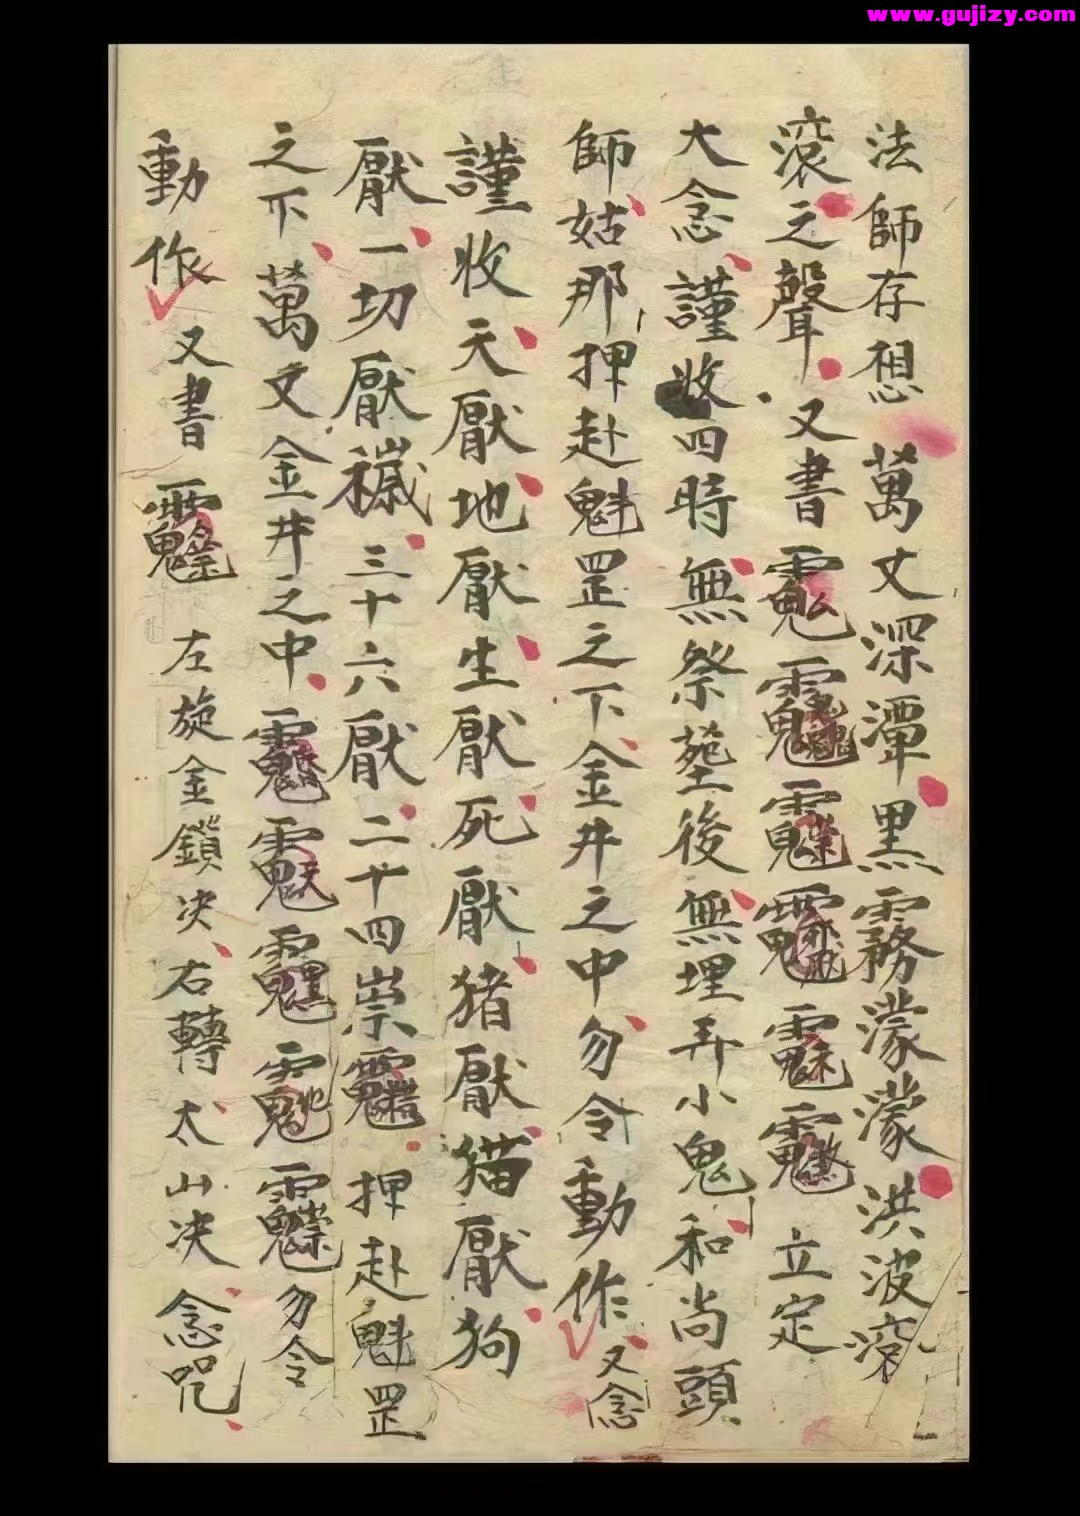 www.gujizy.com
法師存想萬丈深潭黑霧濛濛洪波滾
滾之聲又書 立定
大念謹收四時無祭塟後無埋弄小鬼和尚頭
師姑那押赴魁罡之下金井之中勿令動作又念
謹收天厭地厭生厭死厭猪厭猫厭狗
厭一切厭穢三十六厭二十四祟 押赴魁罡
之下萬丈金井之中 勿令
動作又書 左旋金鎖决右轉太山决念咒